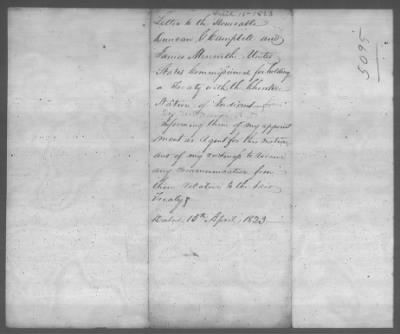 April 15th 1823
Letter to the Honorable
Duncan G Campbell and
James Meriwether United
States Commissioners for holding
a Treaty with the Cherokee
Nation of Indians
Informing them of my appoint
ment as Agent for this nation
and of my readiness to receive
any communication from
them relative to the said
Treaty
Dated 15th April, 1823
5095